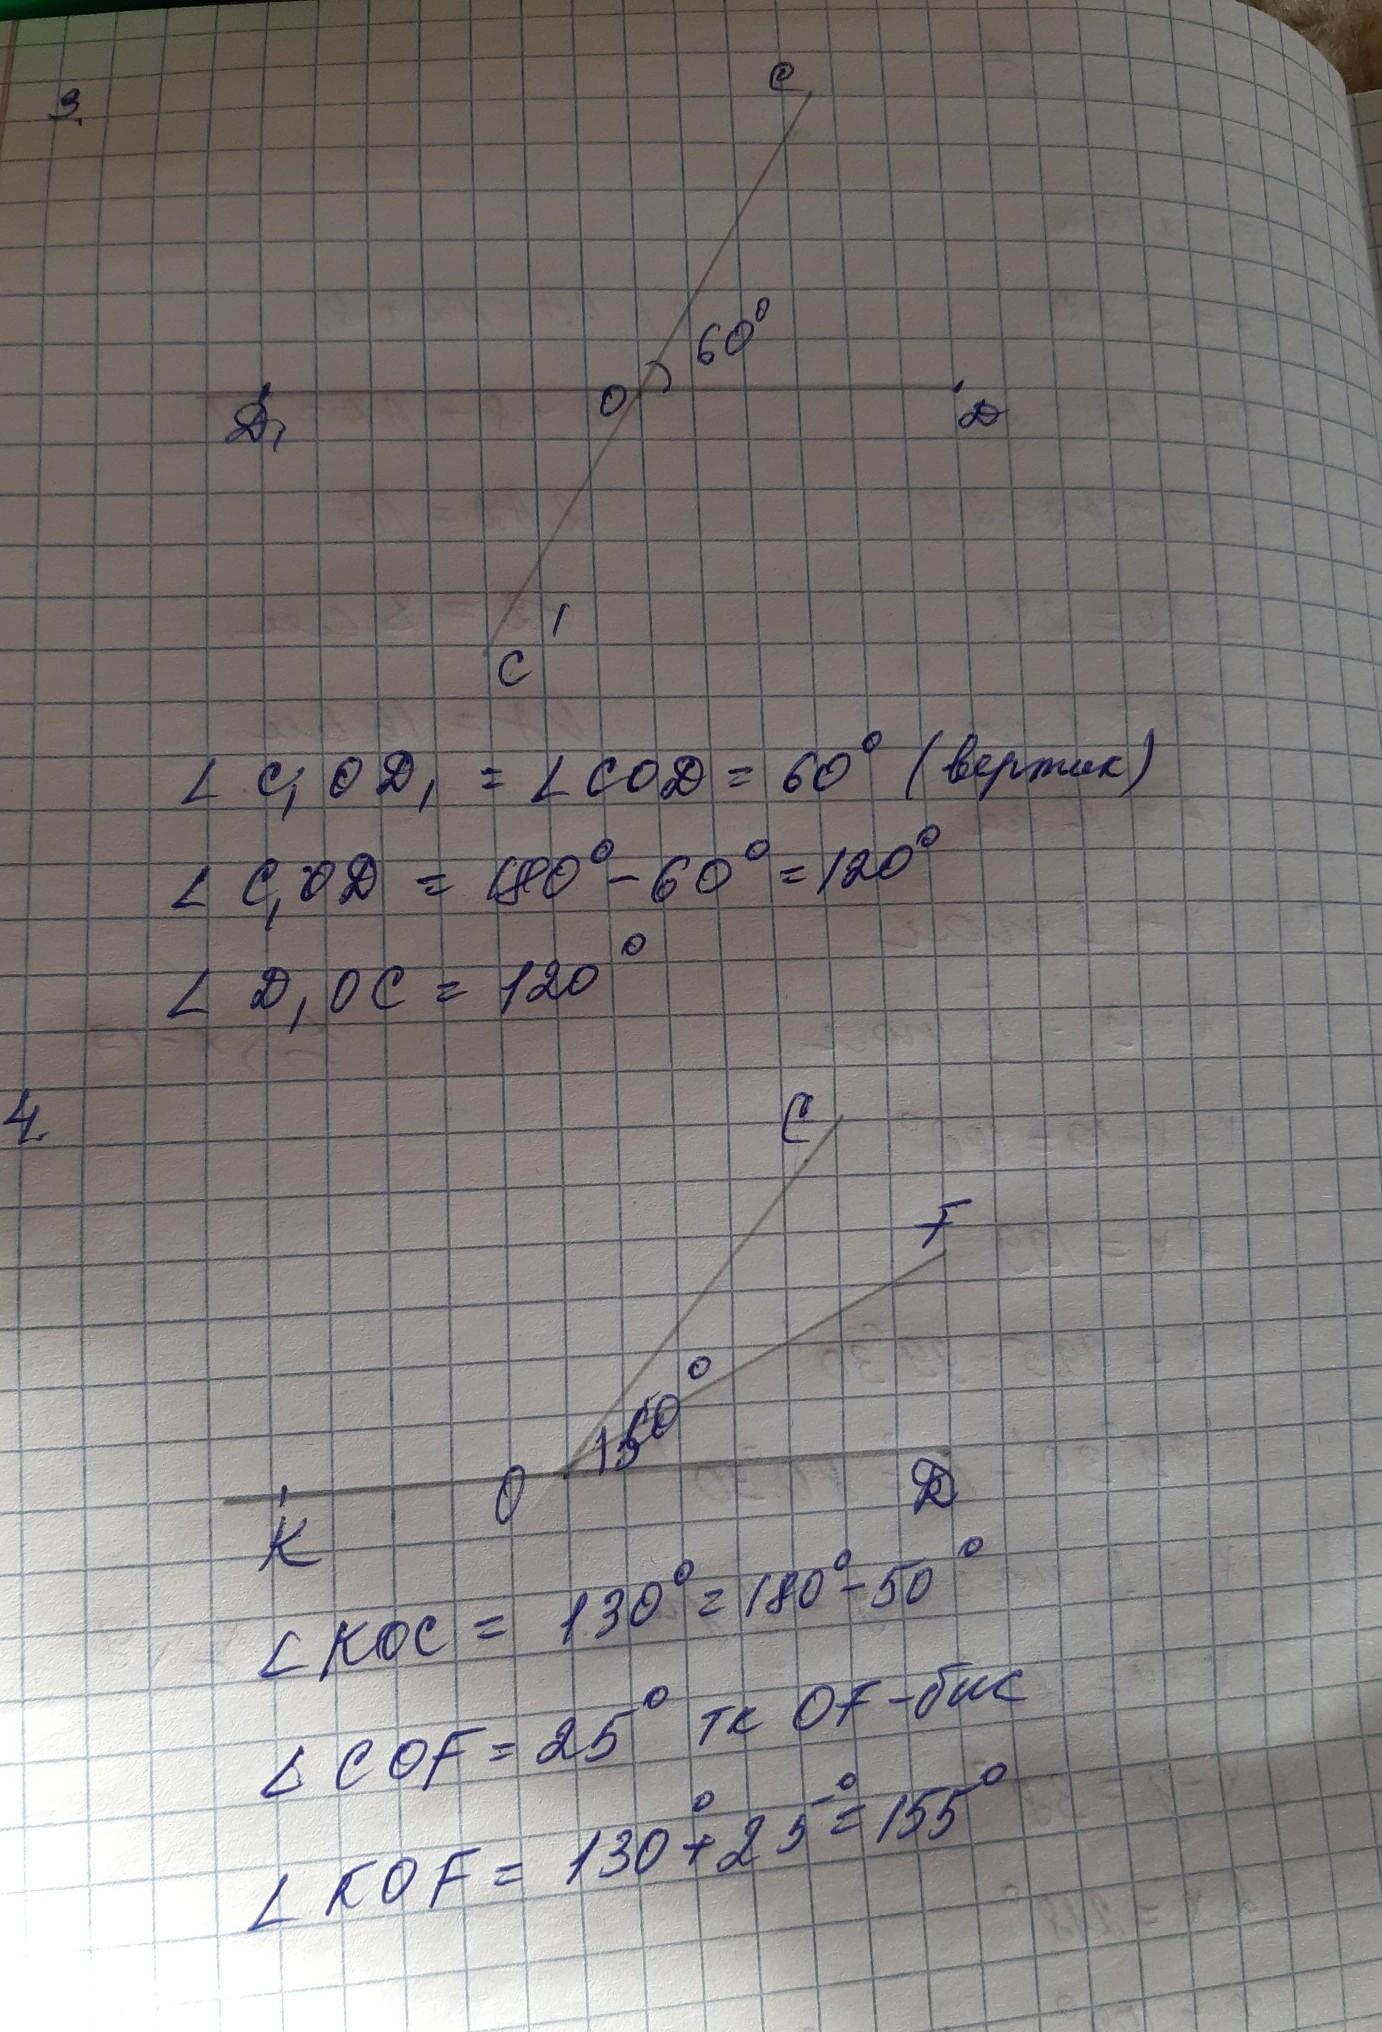 3.
C
60°
O
D₁
D
C₁
∠ C₁OD₁ = ∠COD = 60° (вертик)
∠ C₁OD = 180° - 60° = 120°
∠ D₁OC = 120°
4.
C
F
O
D
K
∠KOC = 130° = 180° - 50°
∠COF = 25° тк OF - бис
∠KOF = 130° + 25° = 155°